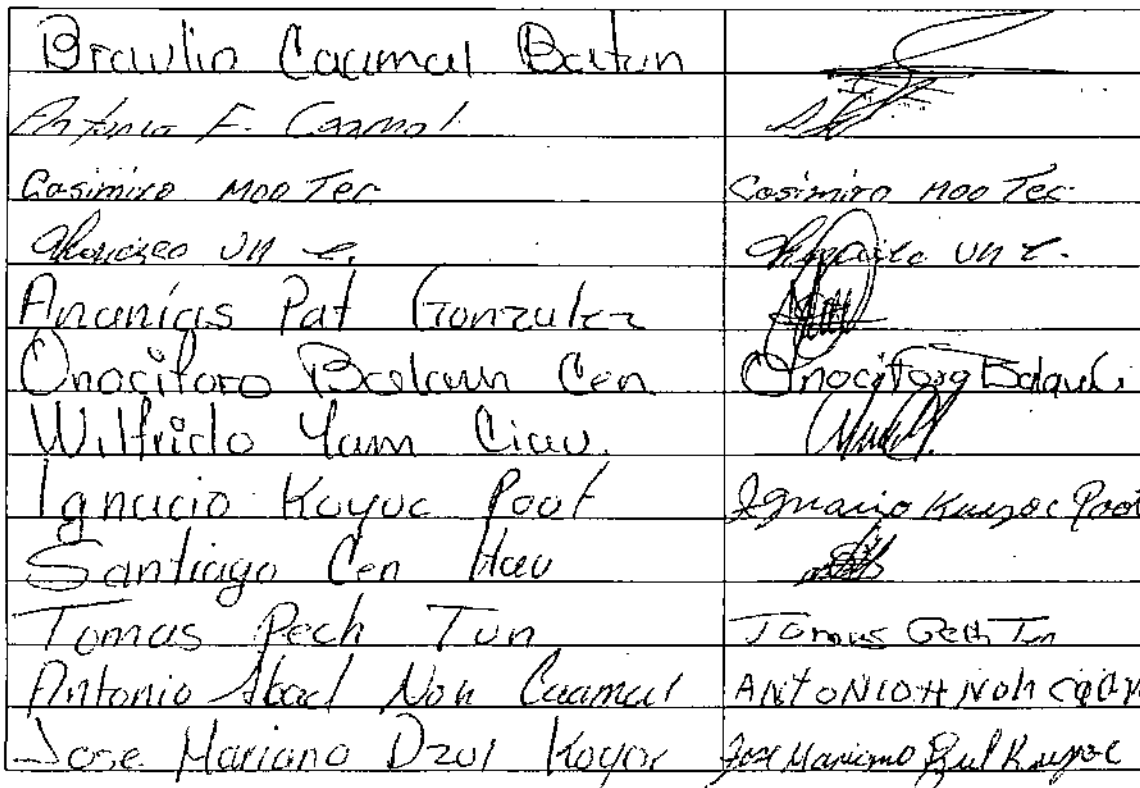 Braulio Caamal Batun
Antonio F. Caamal
Casimiro Moo Tec Casimiro Moo Tec
UN
Ananías Pat Gonzalez
Onociforo Balam Cen Onocifora
Wilfrido Yam Ciau.
Ignacio Kuyoc Poot Ignacio Kuyoc Poot
Santiago Cen Hau
Tomas Pech Tun Tomas Pech Tun
Antonio Abad Noh Caamal ANTONIO A NOh
Jose Mariano Dzul Koyoc Jose Mariano Dzul Kuyoc